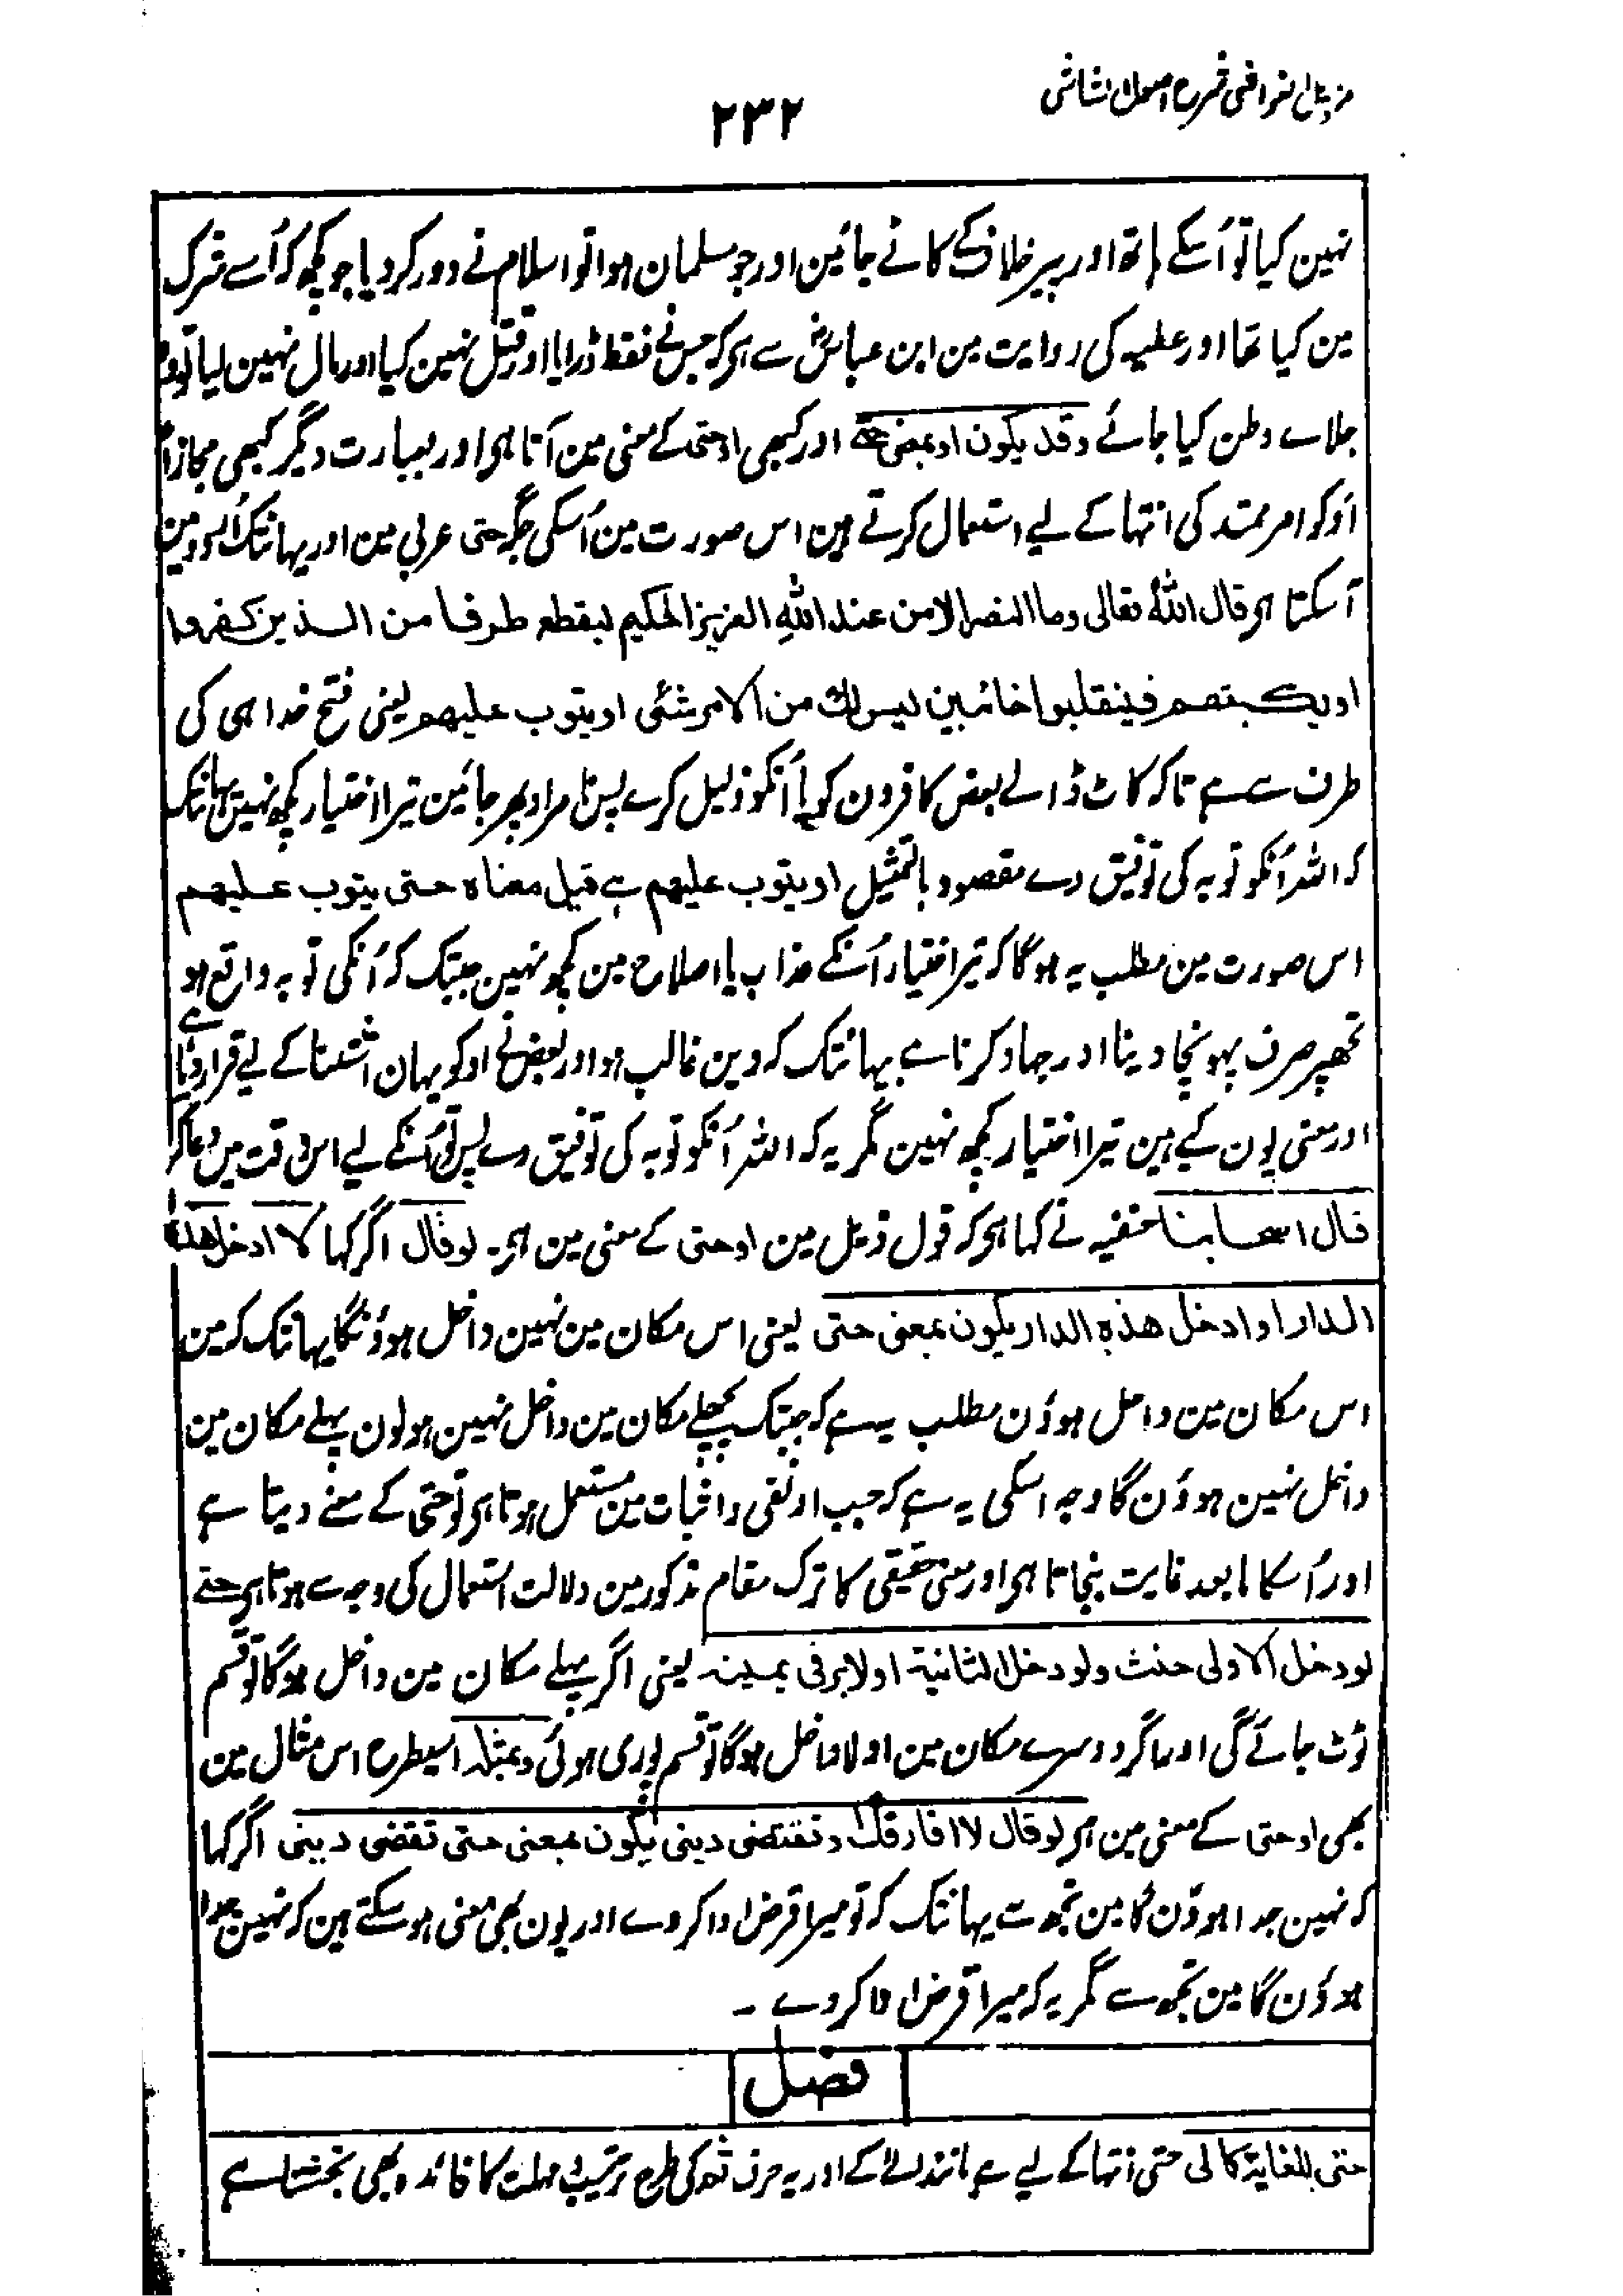 مزیل الغواشی شرح اصول الشاشی
۲۳۲
نہین کیا تو اُسکے ہاتھ اور پیر خلاف کے کاٹے جائین اور جو مسلمان ہوا تو اسلام نے دور کر دیا جو کچھ کہ اُسے شرک
مین کیا تھا اور عطیہ کی روایت مین ابن عباسؓ سے ہی کہ جس نے فقط ڈرایا اور قتل نہین کیا اور مال نہین لیا تو وہ
جلاے وطن کیا جائے وقد یکون او بمعنی حتے اور کبھی او حتی کے معنی مین آتا ہی اور بعبارت دیگر کبھی مجازاً
اَو کو امر ممتد کی انتہا کے لیے استعمال کرتے ہین اس صورت مین اُسکی جگہ حتی عربی مین اور یہانتک اُردو مین
آ سکتا ہی قال اللہُ تعالی وما النصر الا من عند اللهِ العزیز الحکیم لیقطع طرفا من الذین کفروا
او یکبتهم فینقلبوا خائبین لیس لك من الامر شئی او یتوب علیهم یعنی فتح خدا ہی کی
طرف سے ہے تاکہ کاٹ ڈالے بعض کافرون کو یا اُنکو ذلیل کرے پس نامراد پھر جائین تیرا اختیار کچھ نہین یہانتک
کہ اللہ اُنکو توبہ کی توفیق دے مقصود بالتمثیل او یتوب علیهم ہے قیل معناه حتی یتوب علیهم
اس صورت مین مطلب یہ ہوگا کہ تیرا اختیار اُنکے عذاب یا اصلاح مین کچھ نہین جبتک کہ اُنکی توبہ واقع ہو
تجھپر صرف پہونچا دینا اور جہاد کرنا ہے یہانتک کہ دین غالب ہو اور بعض نے او کو یہان اِستثنا کے لیے قرار دیا ہے
اور معنی یون کیے ہین تیرا اختیار کچھ نہین مگر یہ کہ اللہ اُنکو توبہ کی توفیق دے پس تو اُنکے لیے اس وقت مین دعا کر
قال اصحابنا حنفیہ نے کہا ہی کہ قول ذیل مین او حتی کے معنی مین ہی۔ لو قال اگر کہا لا ادخل هذه
الدار او ادخل هذه الدار یکون بمعنی حتی یعنی اس مکان مین نہین داخل ہوؤنگا یہانتک کہ مین
اس مکان مین داخل ہوؤن مطلب یہ ہے کہ جبتک پچھلے مکان مین داخل نہین ہو لون پہلے مکان مین
داخل نہین ہوؤن گا وجہ اسکی یہ ہے کہ جب او نفی و اثبات مین مستعمل ہوتا ہی تو حتی کے معنے دیتا ہے
اور اُسکا مابعد غایت بنجاتا ہی اور معنی حقیقی کا ترک مقام مذکور مین دلالت استعمال کی وجہ سے ہوتا ہی حتے
لو دخل الاولی حنث ولو دخل الثانیة اولا بر فی یمینه یعنی اگر پہلے مکان مین داخل ہوگا تو قسم
ٹوٹ جائے گی اور اگر دوسرے مکان مین اولا داخل ہوگا تو قسم پوری ہوئی وبمثله اسیطرح اس مثال مین
بھی او حتی کے معنی مین ہی لو قال لا افارقك او تقتضی دینی یکون بمعنی حتی تقضی دینی اگر کہا
کہ نہین جدا ہوؤن گا مین تجھ سے یہانتک کہ تو میرا قرض ادا کردے اور یون بھی معنی ہو سکتے ہین کہ نہین جدا
ہوؤن گا مین تجھ سے مگر یہ کہ میرا قرض ادا کردے ۔
فصل
حتی للغایة کالی حتی انتہا کے لیے ہے مانند الے کے اور یہ حرف ثم کی طرح ترتیب و مہلت کا فائدہ بھی بخشتا ہے